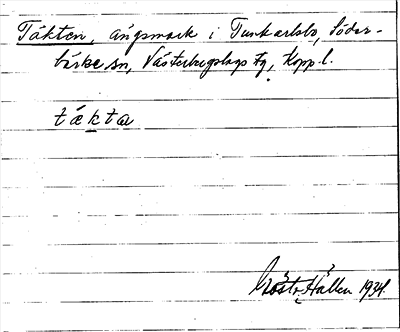 Täkten, ängsmark i Tunkarlsbo, Söder-
bärke sn, Västerbergslags tg, Kopp. l.
tækta
Gösta Hållen 1934